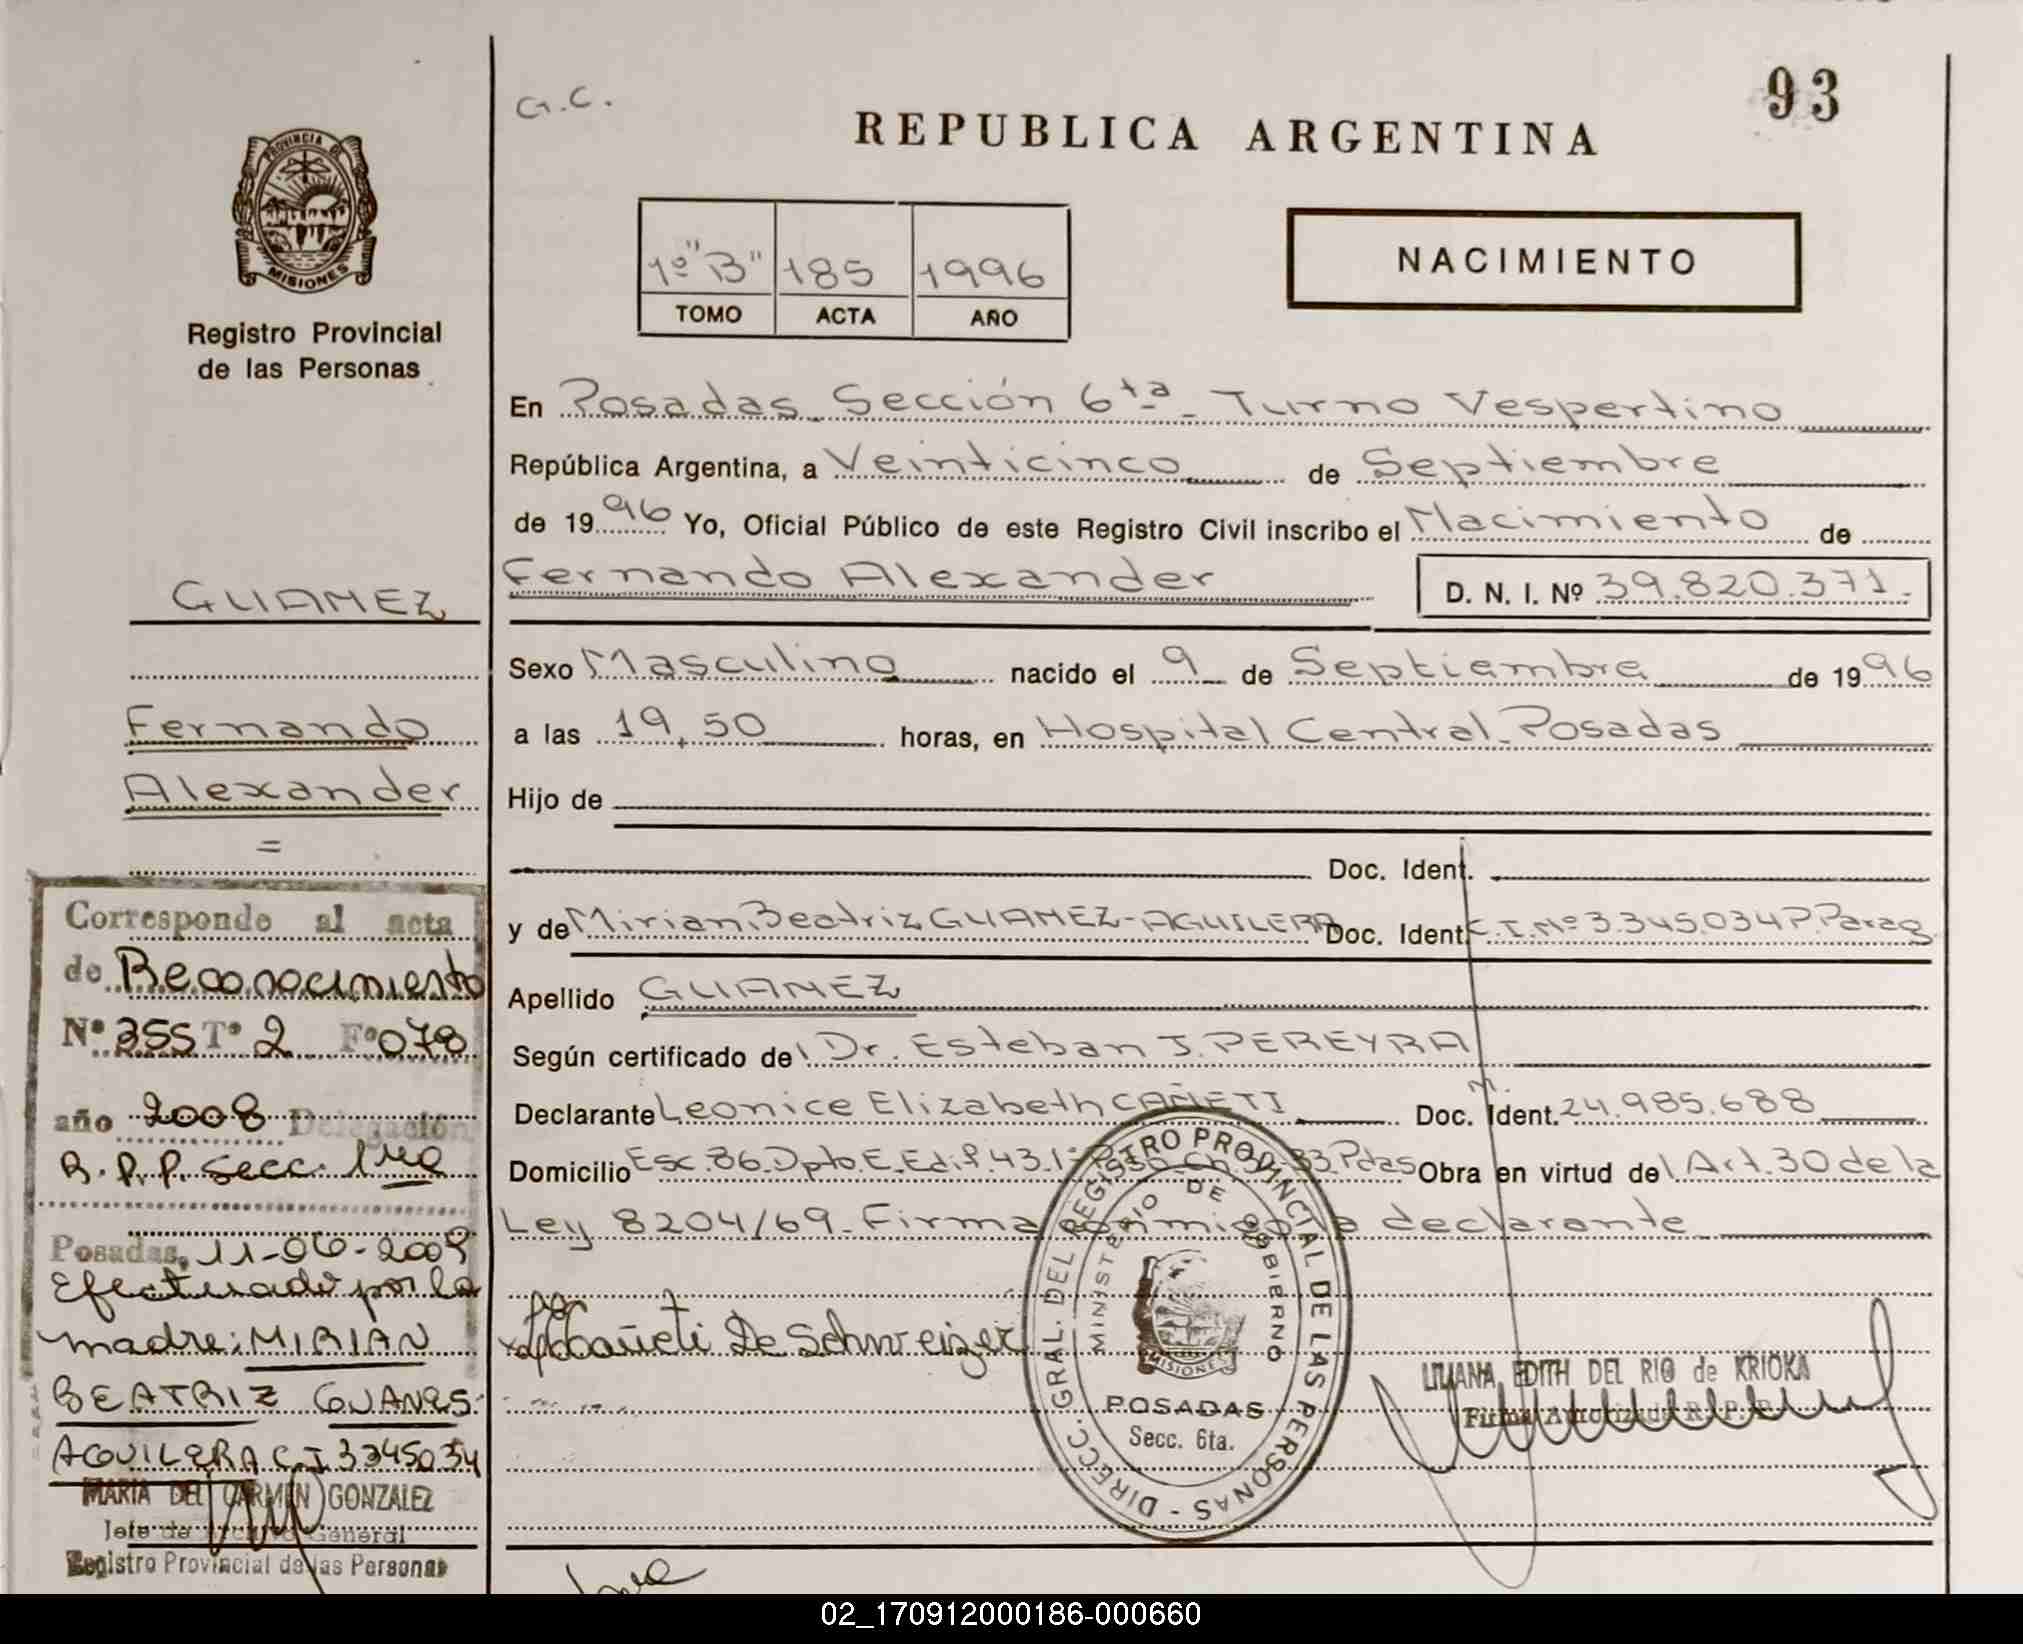 G.C.
93
REPUBLICA ARGENTINA
PROVINCIA DE
MISIONES
Registro Provincial
de las Personas
1º "B" 185 1996
TOMO ACTA AÑO
NACIMIENTO
En Posadas Sección 6ta - Turno Vespertino
República Argentina, a Veinticinco de Septiembre
de 1996 Yo, Oficial Público de este Registro Civil inscribo el Nacimiento de
Fernando Alexander D. N. I. Nº 39.820.371.-
Sexo Masculino nacido el 9 de Septiembre de 1996
a las 19,50 horas, en Hospital Central - Posadas
Hijo de
Doc. Ident.
y de Mirian Beatriz GUANEZ-AGUILERA Doc. Ident. C.I.Nº 3.345.034 P. Parag
Apellido GUANEZ
Según certificado del Dr. Esteban J. PEREYRA
Declarante Leonice Elizabeth CAÑETI Doc. Ident. 24.985.688
Domicilio Esc. 86. Dpto E. Edif. 43. Pdas Obra en virtud del Art. 30 de la
Ley 8204/69 - Firma conmigo la declarante
Cañeti De Schweizer
DIRECC. GRAL. DEL REGISTRO PROVINCIAL DE LAS PERSONAS -
MINISTERIO DE GOBIERNO
MISIONES
POSADAS
Secc. 6ta.
LILIANA EDITH DEL RIO de KRIOKA
Firma Autorizada R. P. P.
GUANEZ
Fernando
Alexander
=
Corresponde al acta
de Reconocimiento
Nº 355 Tº 2 Fº 078
año 2008 Delegación
R.P.P. Secc. 1ra
Posadas, 11-06-2009
Efectuado por la
madre: MIRIAN
BEATRIZ GUANES
AGUILERA C I 3345034
MARIA DEL CARMEN GONZALEZ
Jefe de Archivo General
Registro Provincial de las Personas
02_170912000186-000660